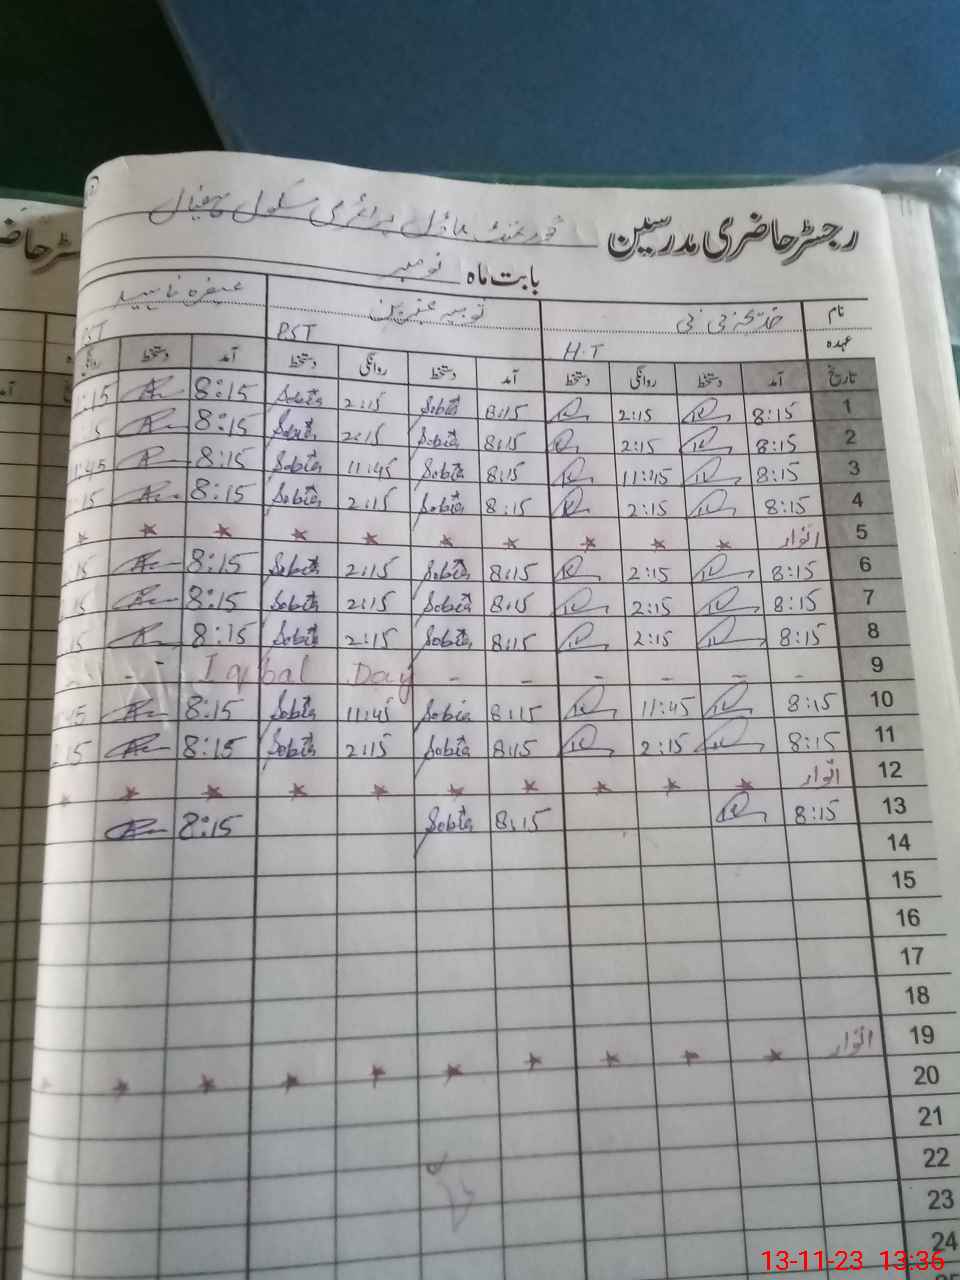 رجسٹر حاضری مدرسین گورنمنٹ ماڈل پرائمری سکول
بابت ماہ نومبر
نام خدیجہ بی بی ثوبیہ عنبرین
عہدہ H.T PST ST
تاریخ آمد دستخط روانگی دستخط آمد دستخط روانگی دستخط آمد دستخط روانگی
1 8:15 2:15 8:15 Sobia 2:15 Sobia 8:15 :15
2 8:15 2:15 8:15 Sobia 2:15 Sobia 8:15 5
3 8:15 11:45 8:15 Sobia 11:45 Sobia 8:15 1:45
4 8:15 2:15 8:15 Sobia 2:15 Sobia 8:15 :15
5 اتوار
6 8:15 2:15 8:15 Sobia 2:15 Sobia 8:15 :15
7 8:15 2:15 8:15 Sobia 2:15 Sobia 8:15 :15
8 8:15 2:15 8:15 Sobia 2:15 Sobia 8:15 :15
9 - - - - - - Iqbal Day -
10 8:15 11:45 8:15 Sobia 11:45 Sobia 8:15 :45
11 8:15 2:15 8:15 Sobia 2:15 Sobia 8:15 :15
12 اتوار
13 8:15 8:15 Sobia 8:15
14
15
16
17
18
19 اتوار
20
21
22
23
24
13-11-23 13:36